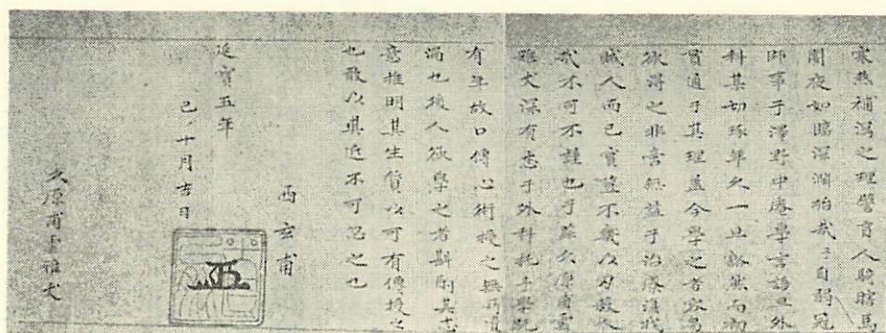 寒熱補瀉之理譬盲人騎瞎馬
闇夜如臨深淵殆哉予自弱冠
師事于澤野中庵學言語與外
科其切琢年久一旦豁然而初
貫通于其理蓋今學之者容易
欲得之非啻無益于治療
賊人而已實豈不
哉不可不謹也于茲久原甫雲
雅丈深有志于外科託予學既
有年故口傳心術授之無所遺
漏也後人欲學之者斟酌其志
意推明其生質以可有傳授之
也敢以其近不可忽之也
延寶五年
巳ノ十月吉日
西玄甫
久原甫雲雅丈